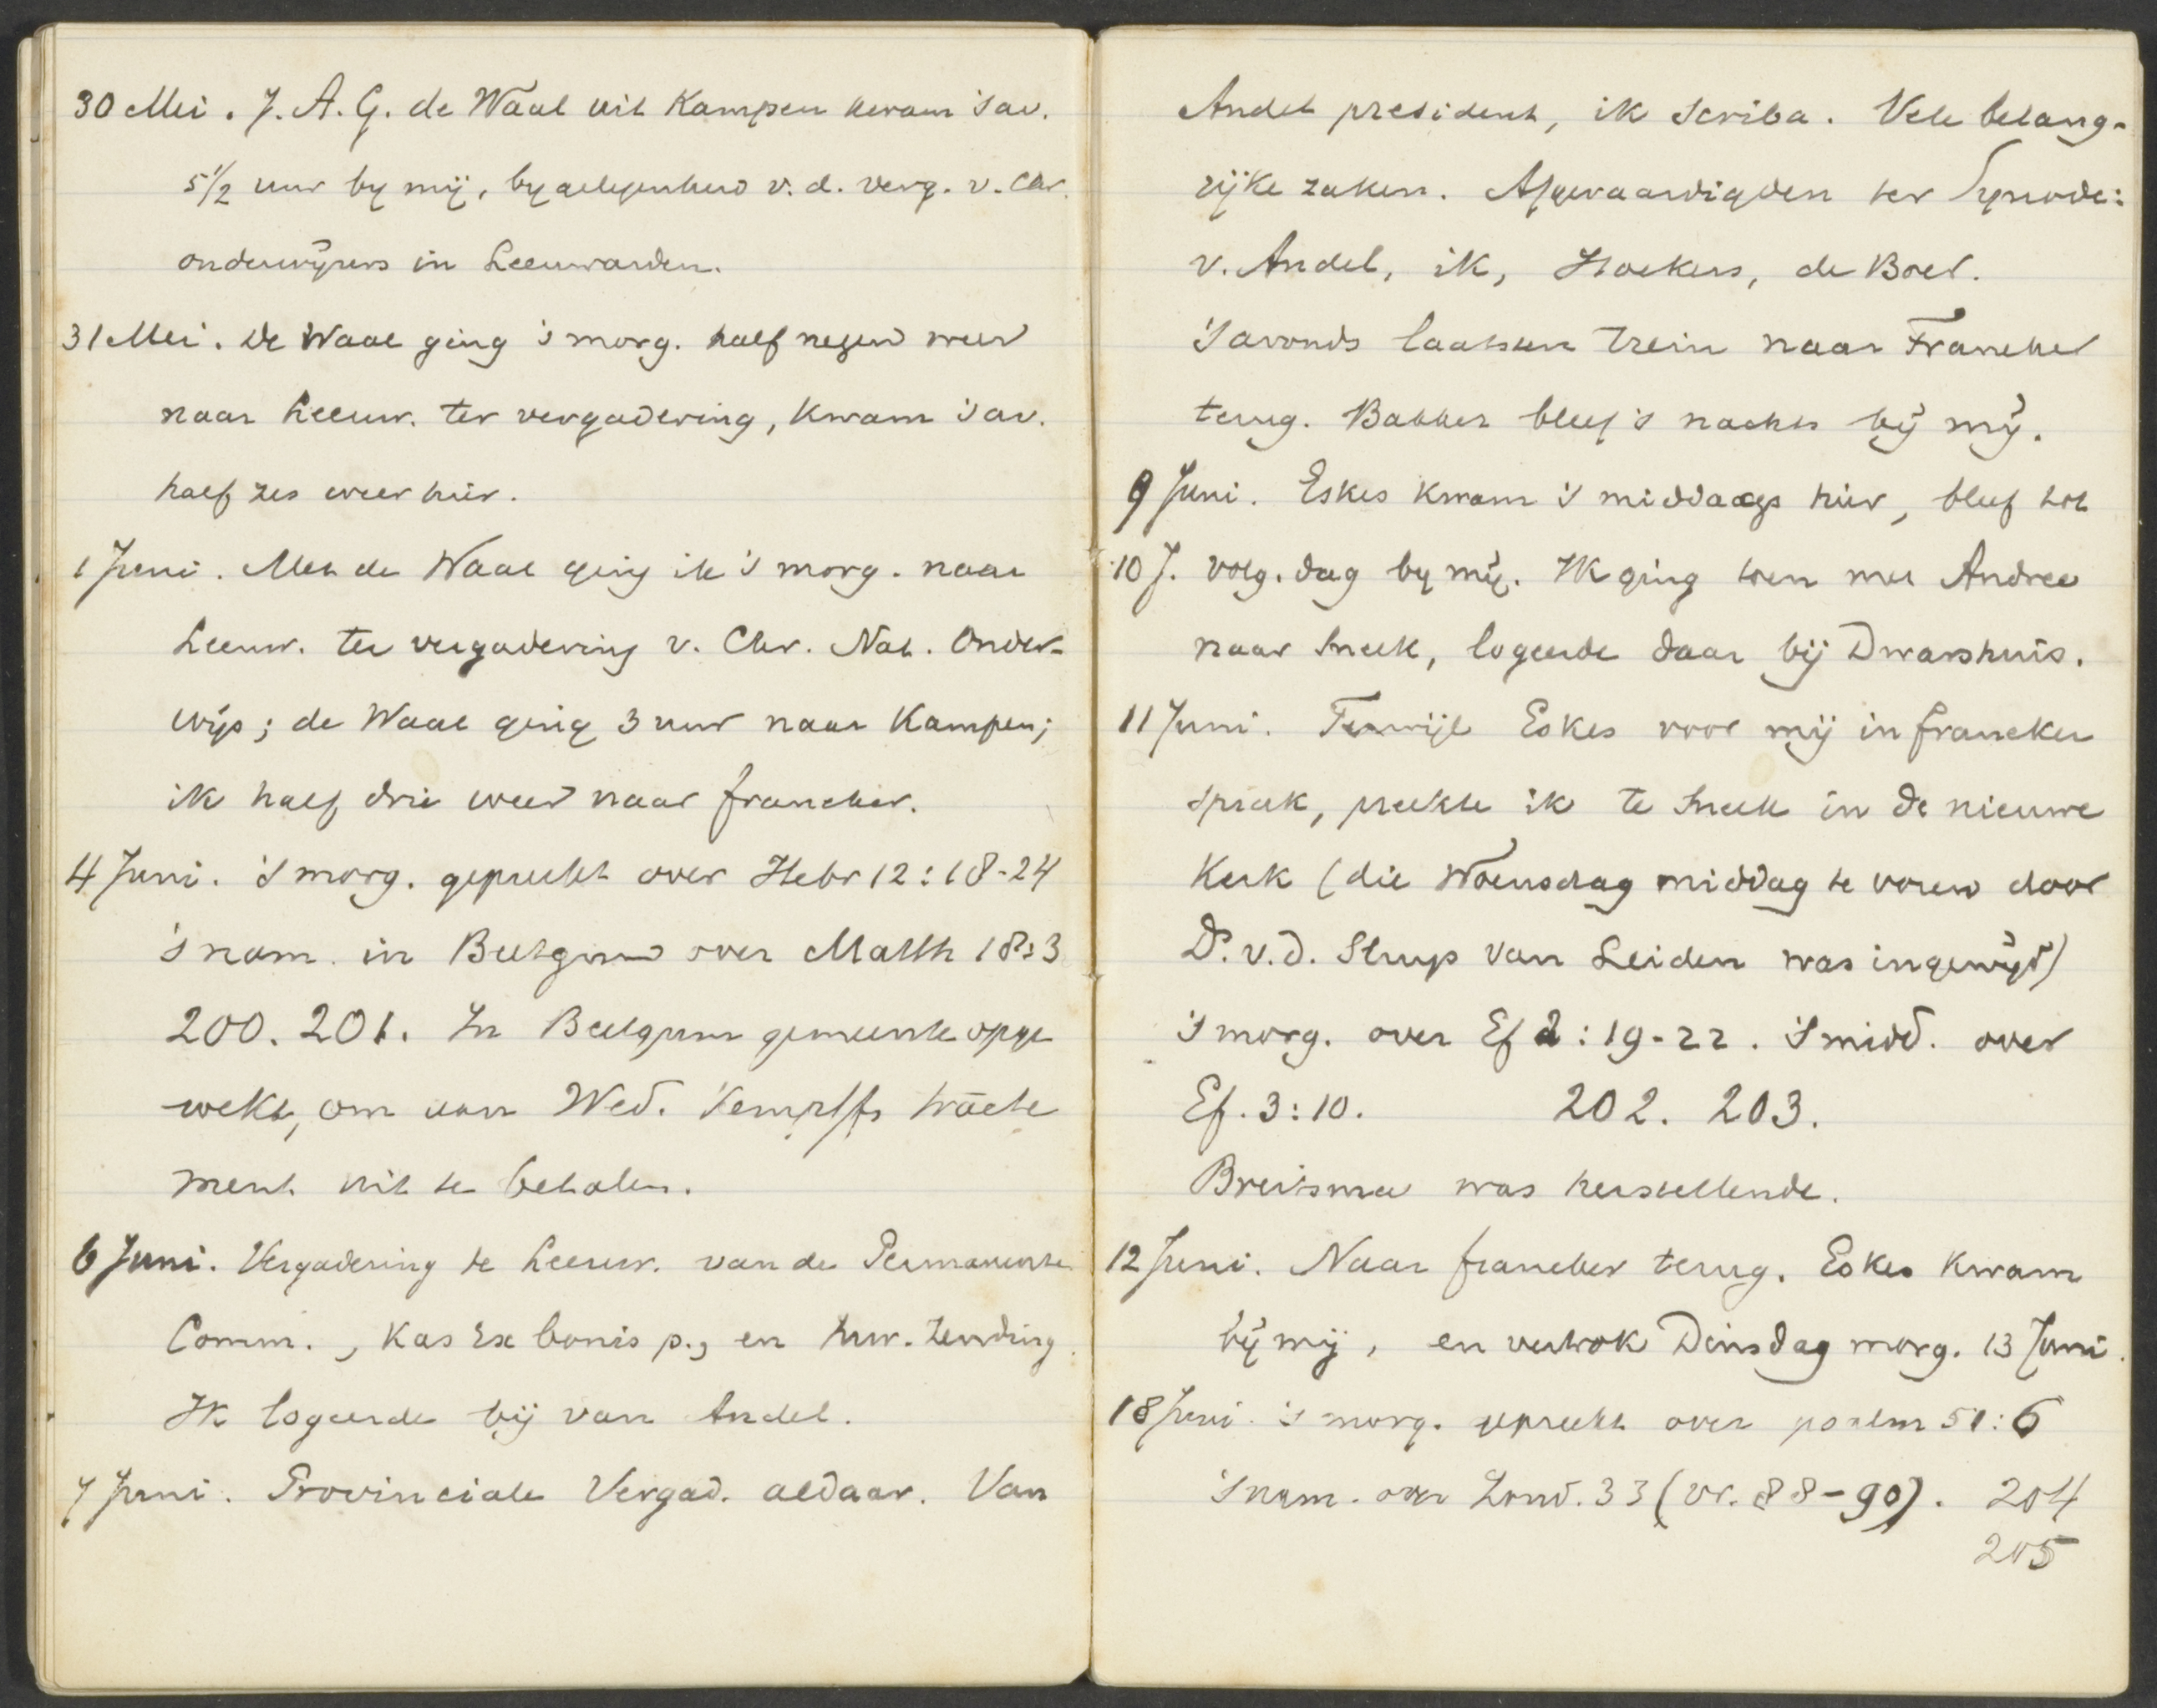 30 Mei. J. A. G. de Waal uit Kampen kwam 's av.
5 1/2 uur by mij, by gelegenheid v. d. verg. v. Chr.
onderwijzers in Leeuwarden.
31 Mei. De Waal ging 's morg. half negen weer
naar Leeuw. ter vergadering, kwam 's av.
half zes weer hier.
1 Juni. Met de Waal ging ik 's morg. naar
Leeuw. ter vergadering v. Chr. Nat. Onder-
wijs; de Waal ging 3 uur naar Kampen;
ik half drie weer naar Franeker.
4 Juni. 's morg. gepreekt over Hebr 12:18-24
's nam. in Beetgum over Matth 18:3
200. 201. In Beetgum gemeente opge
wekt, om aan Wed. Kempffs tracte
ment uit te betalen.
6 Juni. Vergadering te Leeuw. van de Permanente
Comm., Kas Ex bonis p., en Inw. Zending.
Ik logeerde bij van Andel.
7 Juni. Provinciale Vergad. aldaar. Van
Andel president, ik scriba. Vele belang-
rijke zaken. Afgevaardigden ter Synode:
v. Andel, ik, Hoekers, de Boer.
's avonds laatsten trein naar Franeker
terug. Bakker bleef 's nachts bij mij.
9 Juni. Eskes kwam 's middaags hier, bleef tot
10 J. volg. dag by mij. Ik ging toen met Andree
naar Sneek, logeerde daar bij Dwarshuis.
11 Juni. Terwijl Eskes voor mij in Franeker
sprak, preekte ik te Sneek in de nieuwe
Kerk (die Woensdag middag te voren door
Ds. v. d. Sluys van Leiden was ingewijd)
's morg. over Ef 2:19-22. 's midd. over
Ef. 3:10. 202. 203.
Breitsma was herstellende.
12 Juni. Naar Franeker terug. Eskes kwam
bij mij, en vertrok Dinsdag morg. 13 Juni.
18 Juni. 's morg. gepreekt over psalm 51:6
's nam. over Zond. 33 (vr. 88-90). 204
205